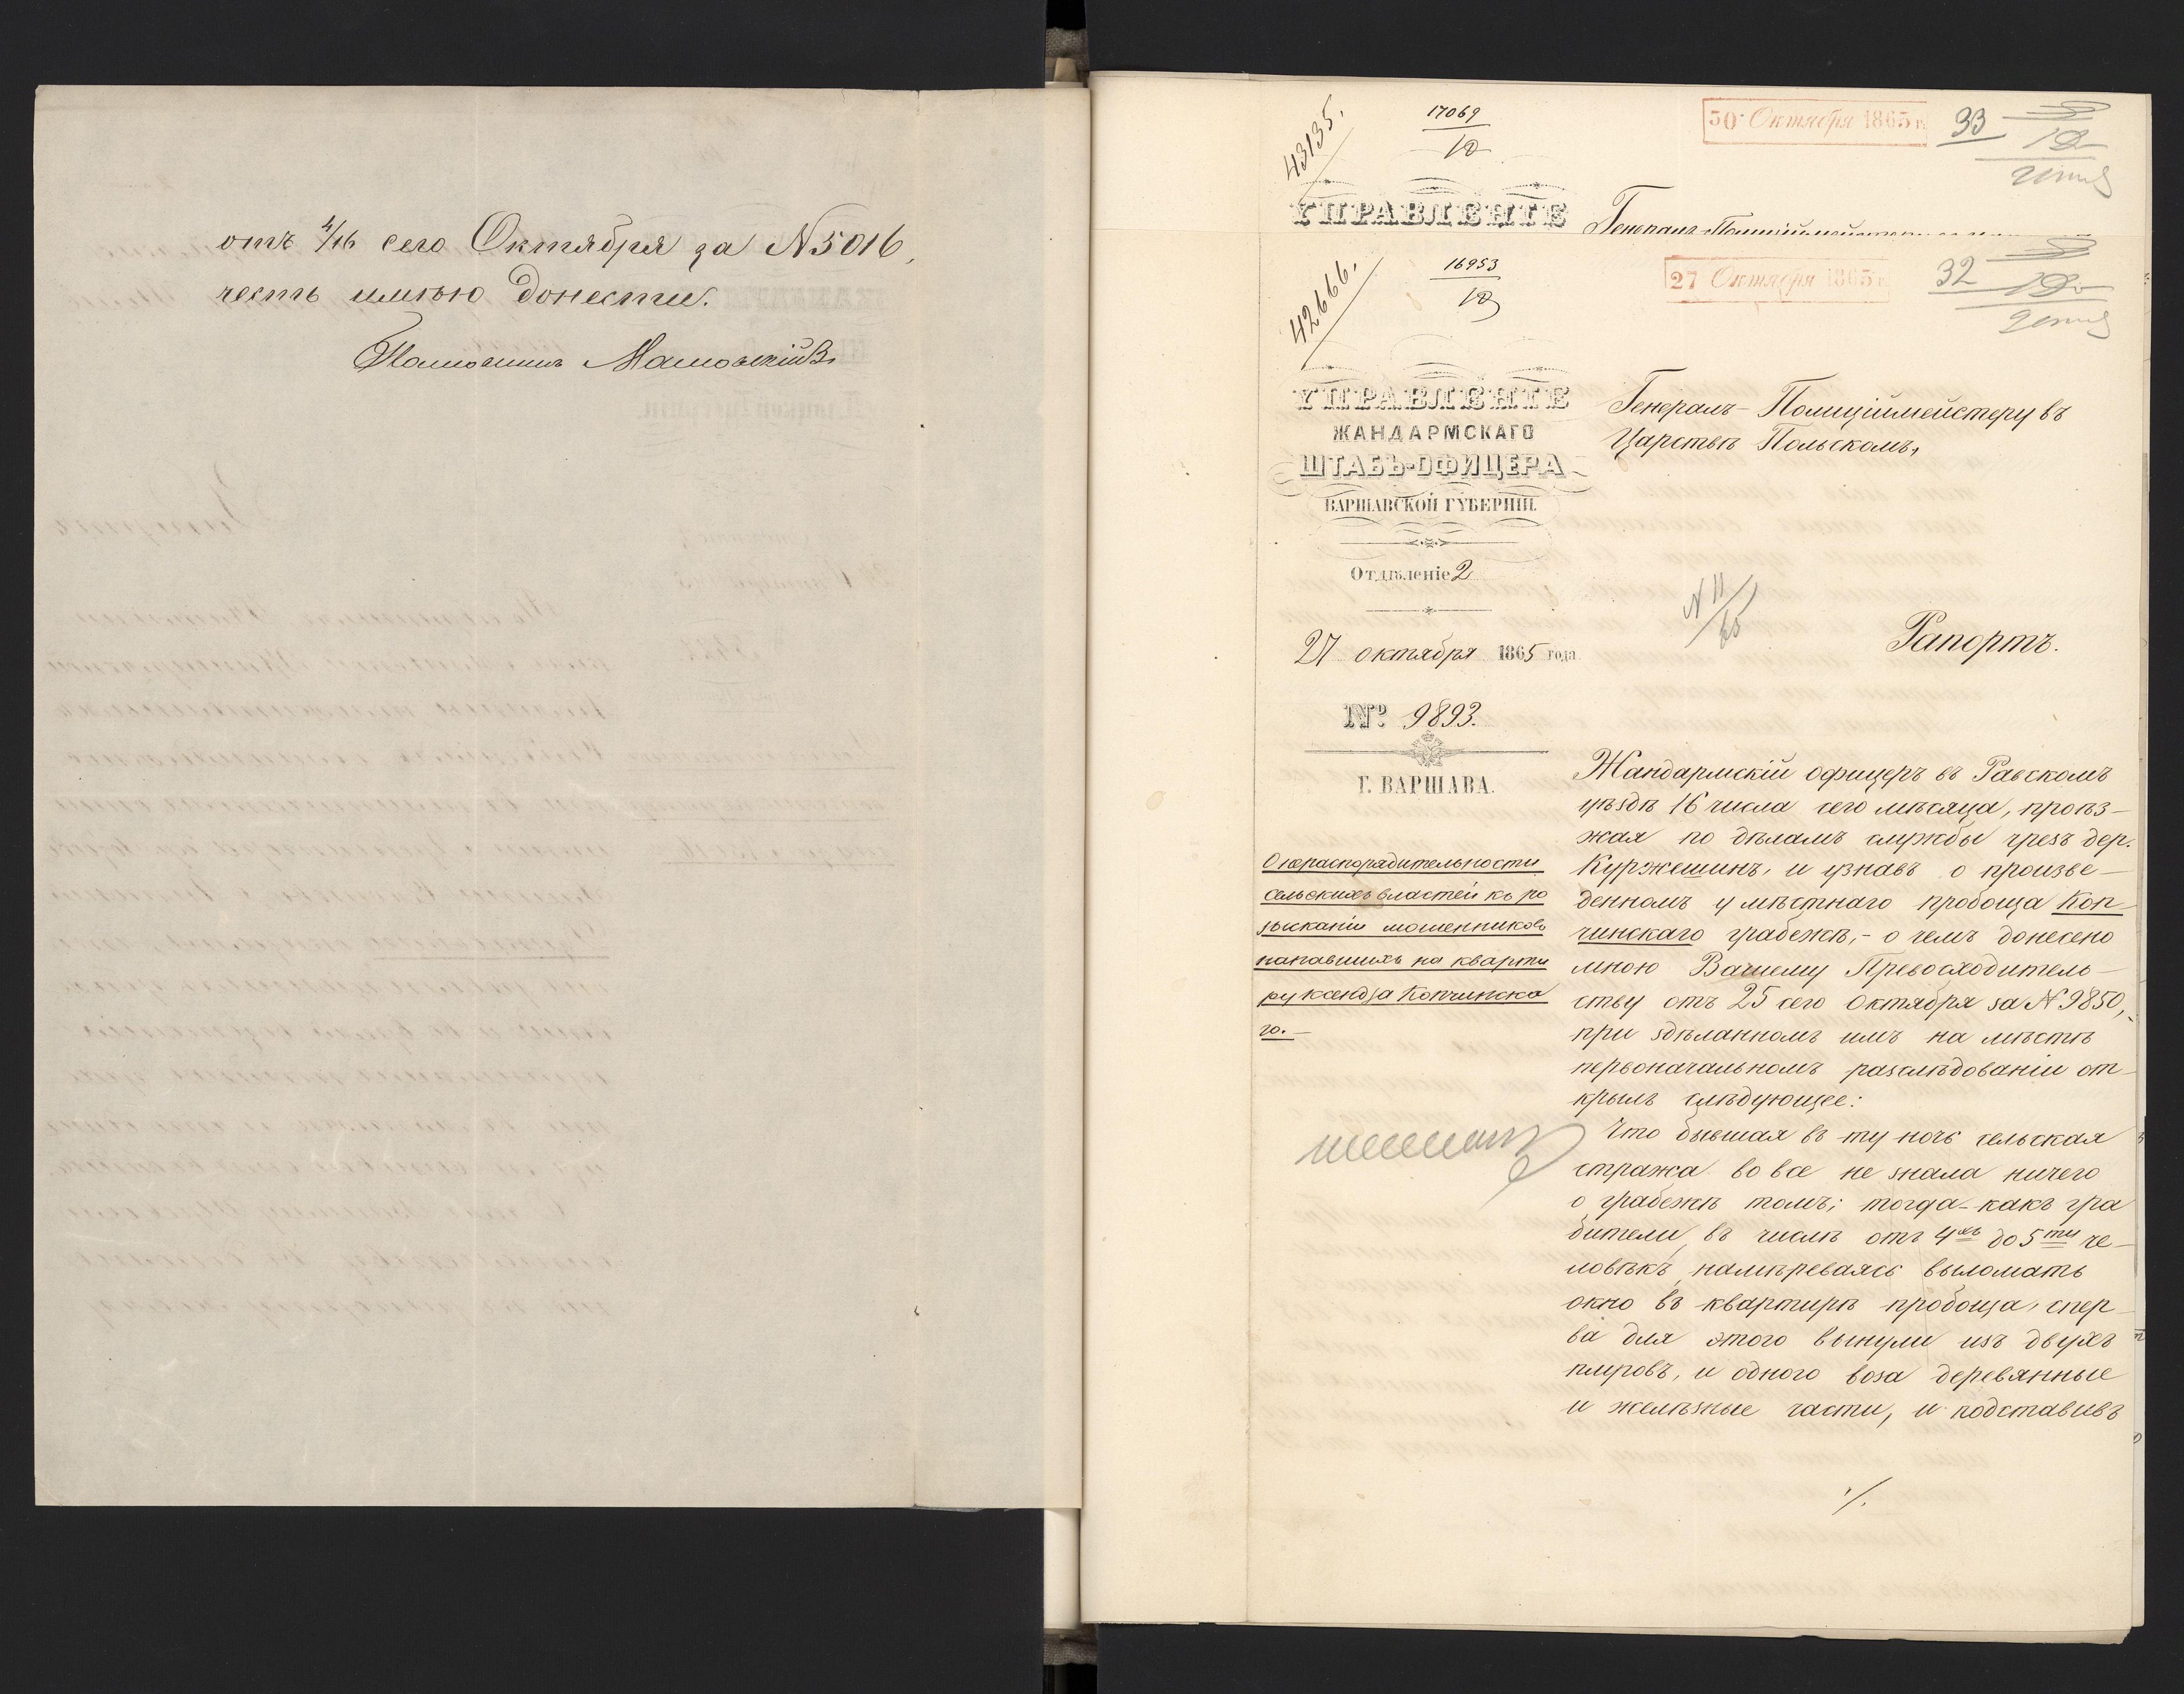 отъ 4/16 сего Октября за N 5016,
честь имѣю донести.
43135.
17069
10
30 Октября 1865 г.
33
УПРАВЛЕНІЕ
Генералъ-Полиціймейстеру
42666.
16953
10
27 Октября 1865 г.
32
УПРАВЛЕНІЕ
ЖАНДАРМСКАГО
ШТАБЪ-ОФИЦЕРА
ВАРШАВСКОЙ ГУБЕРНІИ.
Отдѣленіе 2
27 октября 1865 года
№ 9893.
Г. ВАРШАВА.
О нераспорядительности
сельскихъ властей къ ро
зысканію мошенниковъ
напавшихъ на кварти
ру ксендза Копчинска
го.—
Генералъ-Полиціймейстеру въ
Царствѣ Польскомъ,
N 11/65
Рапортъ.
Жандармскій офицеръ въ Равскомъ
уѣздѣ 16 числа сего мѣсяца, проѣз-
жая по дѣламъ службы чрезъ дер.
Куржешинъ, и узнавъ о произве-
денномъ у мѣстнаго пробоща Коп-
чинскаго грабежѣ,- о чемъ донесено
мною Вашему Превосходитель-
ству отъ 25 сего Октября за N 9850,
при здѣланномъ имъ на мѣстѣ
первоначальномъ разслѣдованіи от-
крылъ слѣдующее:
Что бывшая въ ту ночь сельская
стража вовсе не знала ничего
о грабежѣ томъ; тогда-какъ гра
бители, въ числѣ отъ 4хъ до 5ти че-
ловѣкъ, намѣреваясь выломать
окно въ квартирѣ пробоща, спер-
ва для этого вынули изъ двухъ
плуговъ, и одного воза деревянные
и желѣзные части, и подставивъ
./.